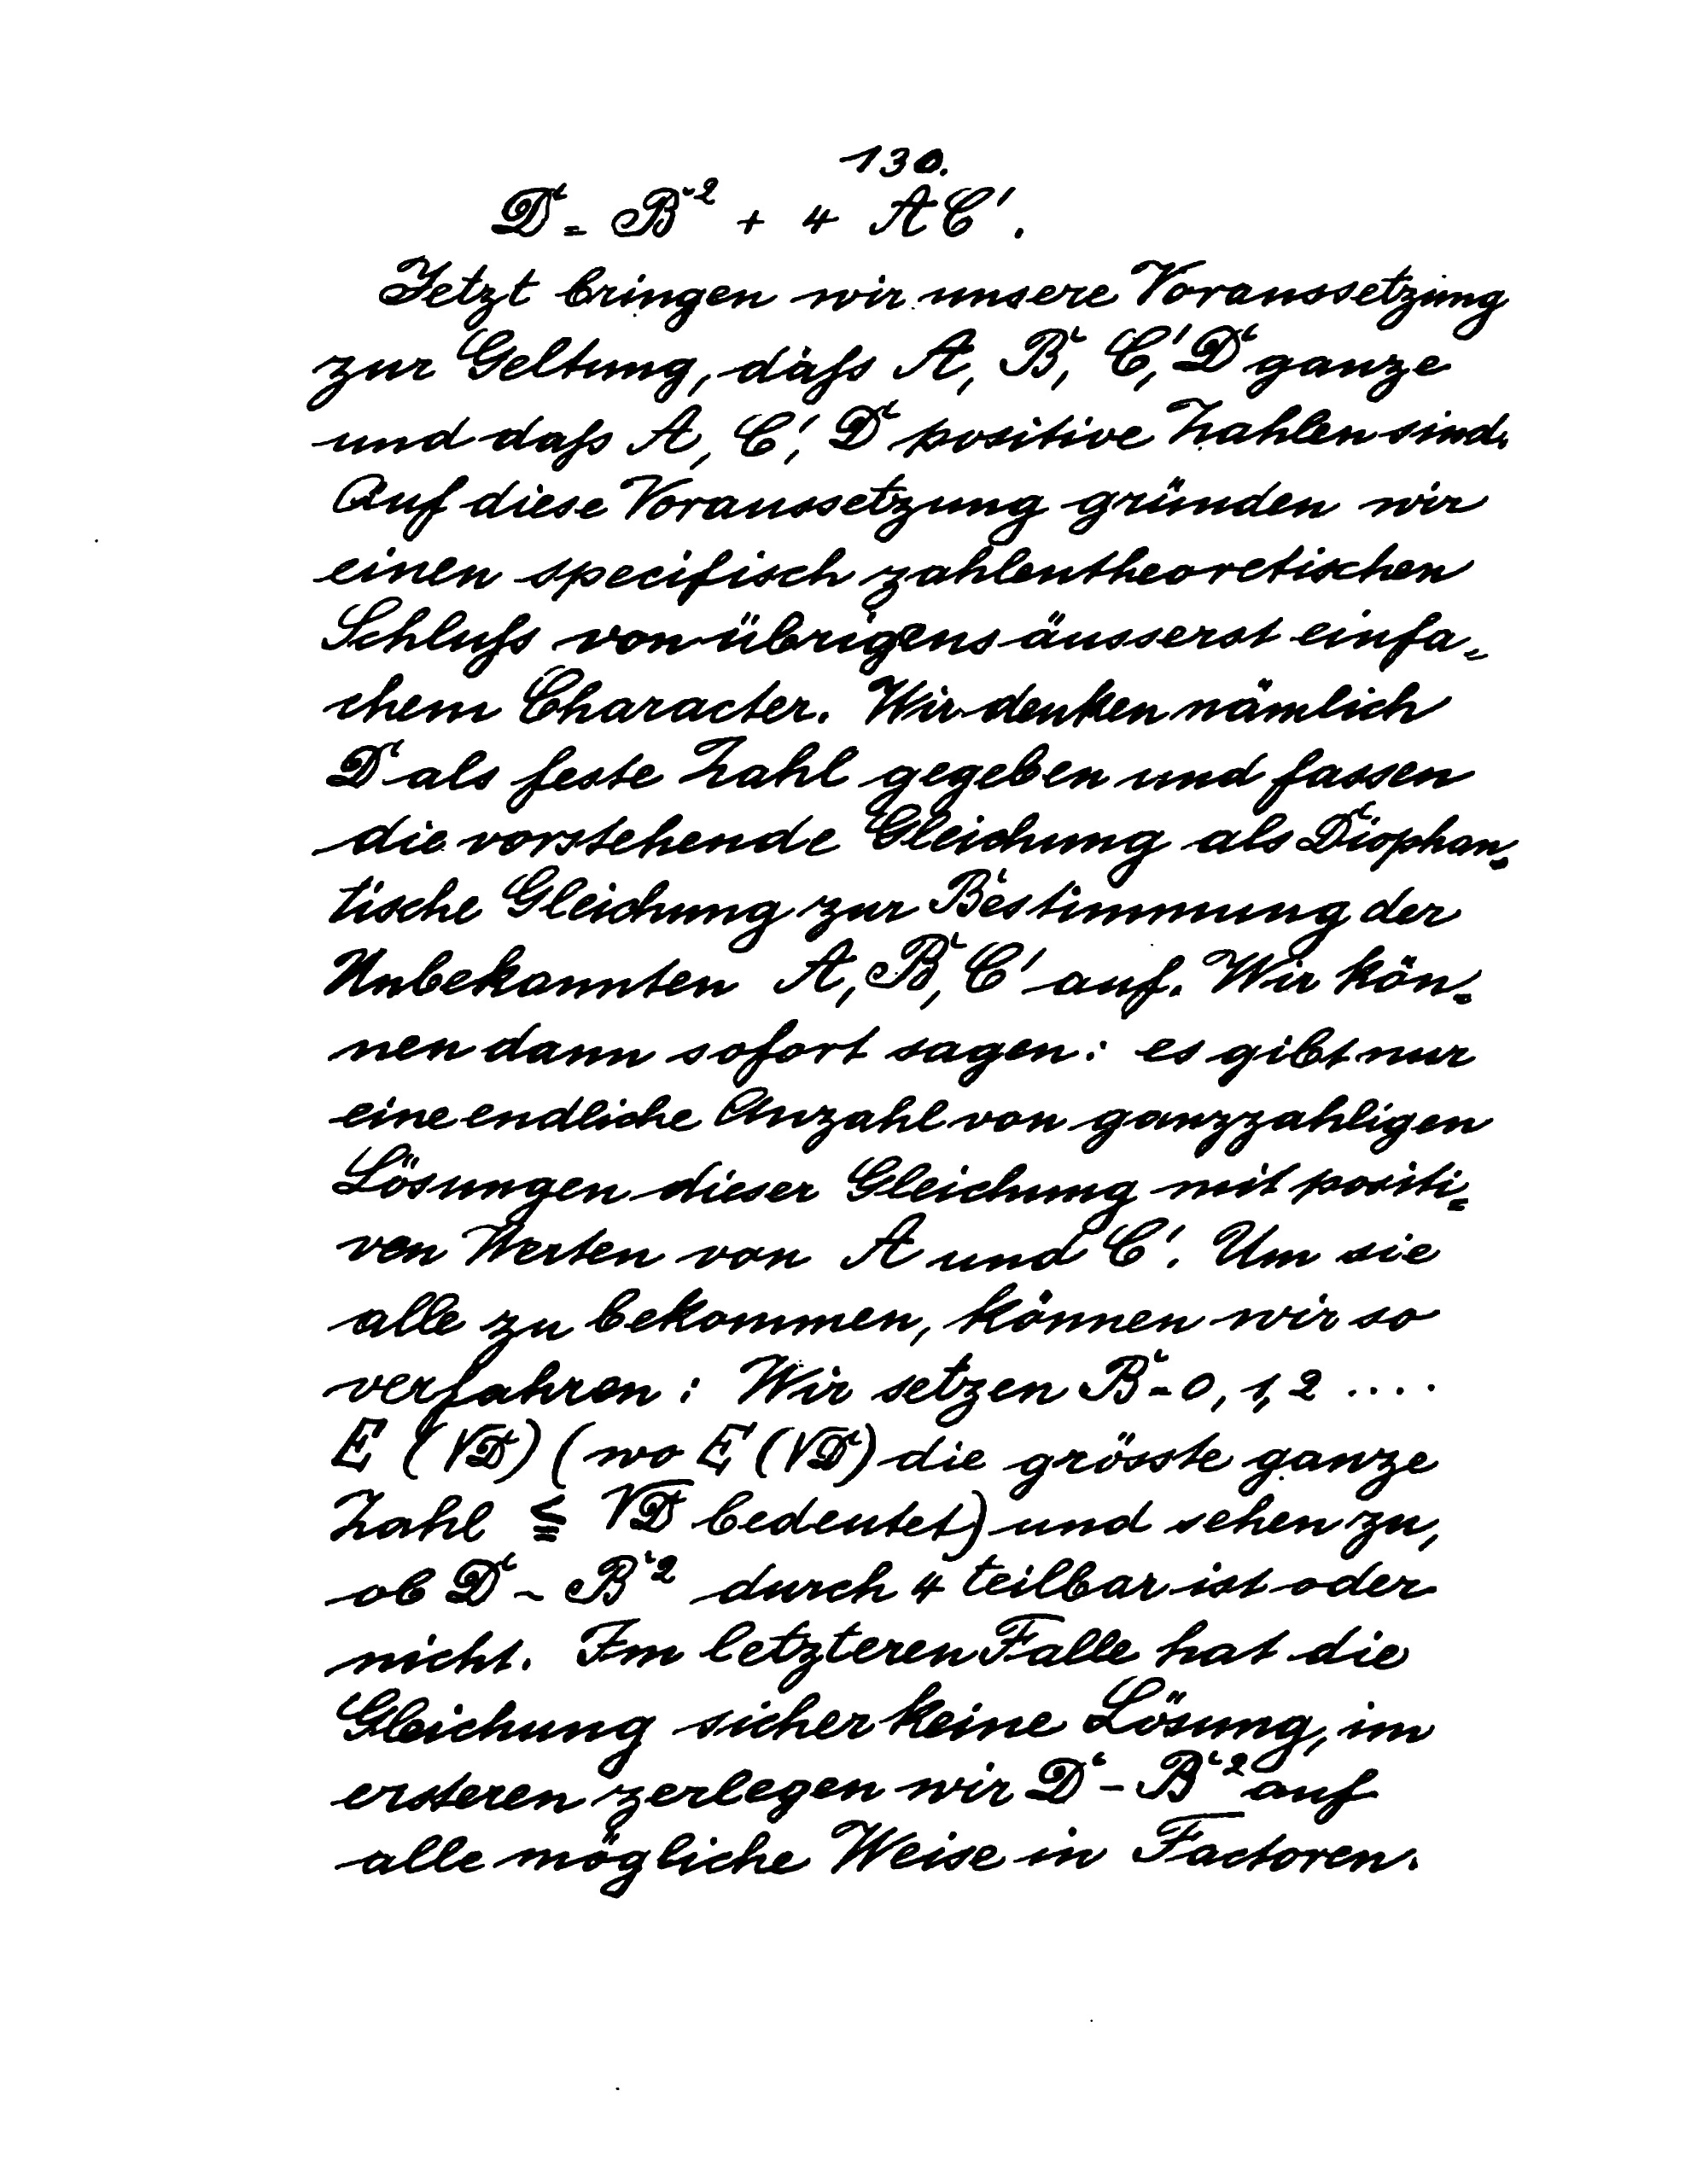 130.
D = B² + 4 AC'.
Jetzt bringen wir unsere Voraussetzung
zur Geltung, daſs A, B, C', D ganze
und daſs A, C', D positive Zahlen sind.
Auf diese Voraussetzung gründen wir
einen specifisch zahlentheoretischen
Schluſs von übrigens äusserst einfa=
chem Character. Wir denken nämlich
D als feste Zahl gegeben und fassen
die vorstehende Gleichung als Diophan=
tische Gleichung zur Bestimmung der
Unbekannten A, B, C' auf. Wir kön=
nen dann sofort sagen: es gibt nur
eine endliche Anzahl von ganzzahligen
Lösungen dieser Gleichung mit positi=
ven Werten von A und C'. Um sie
alle zu bekommen, können wir so
verfahren: Wir setzen B = 0, 1, 2 ....
E (√D) (wo E (√D) die grösste ganze
Zahl ≦ √D bedeutet) und sehen zu,
ob D - B² durch 4 teilbar ist oder
nicht. Im letzteren Falle hat die
Gleichung sicher keine Lösung, im
ersteren zerlegen wir D - B² auf
alle mögliche Weise in Factoren.